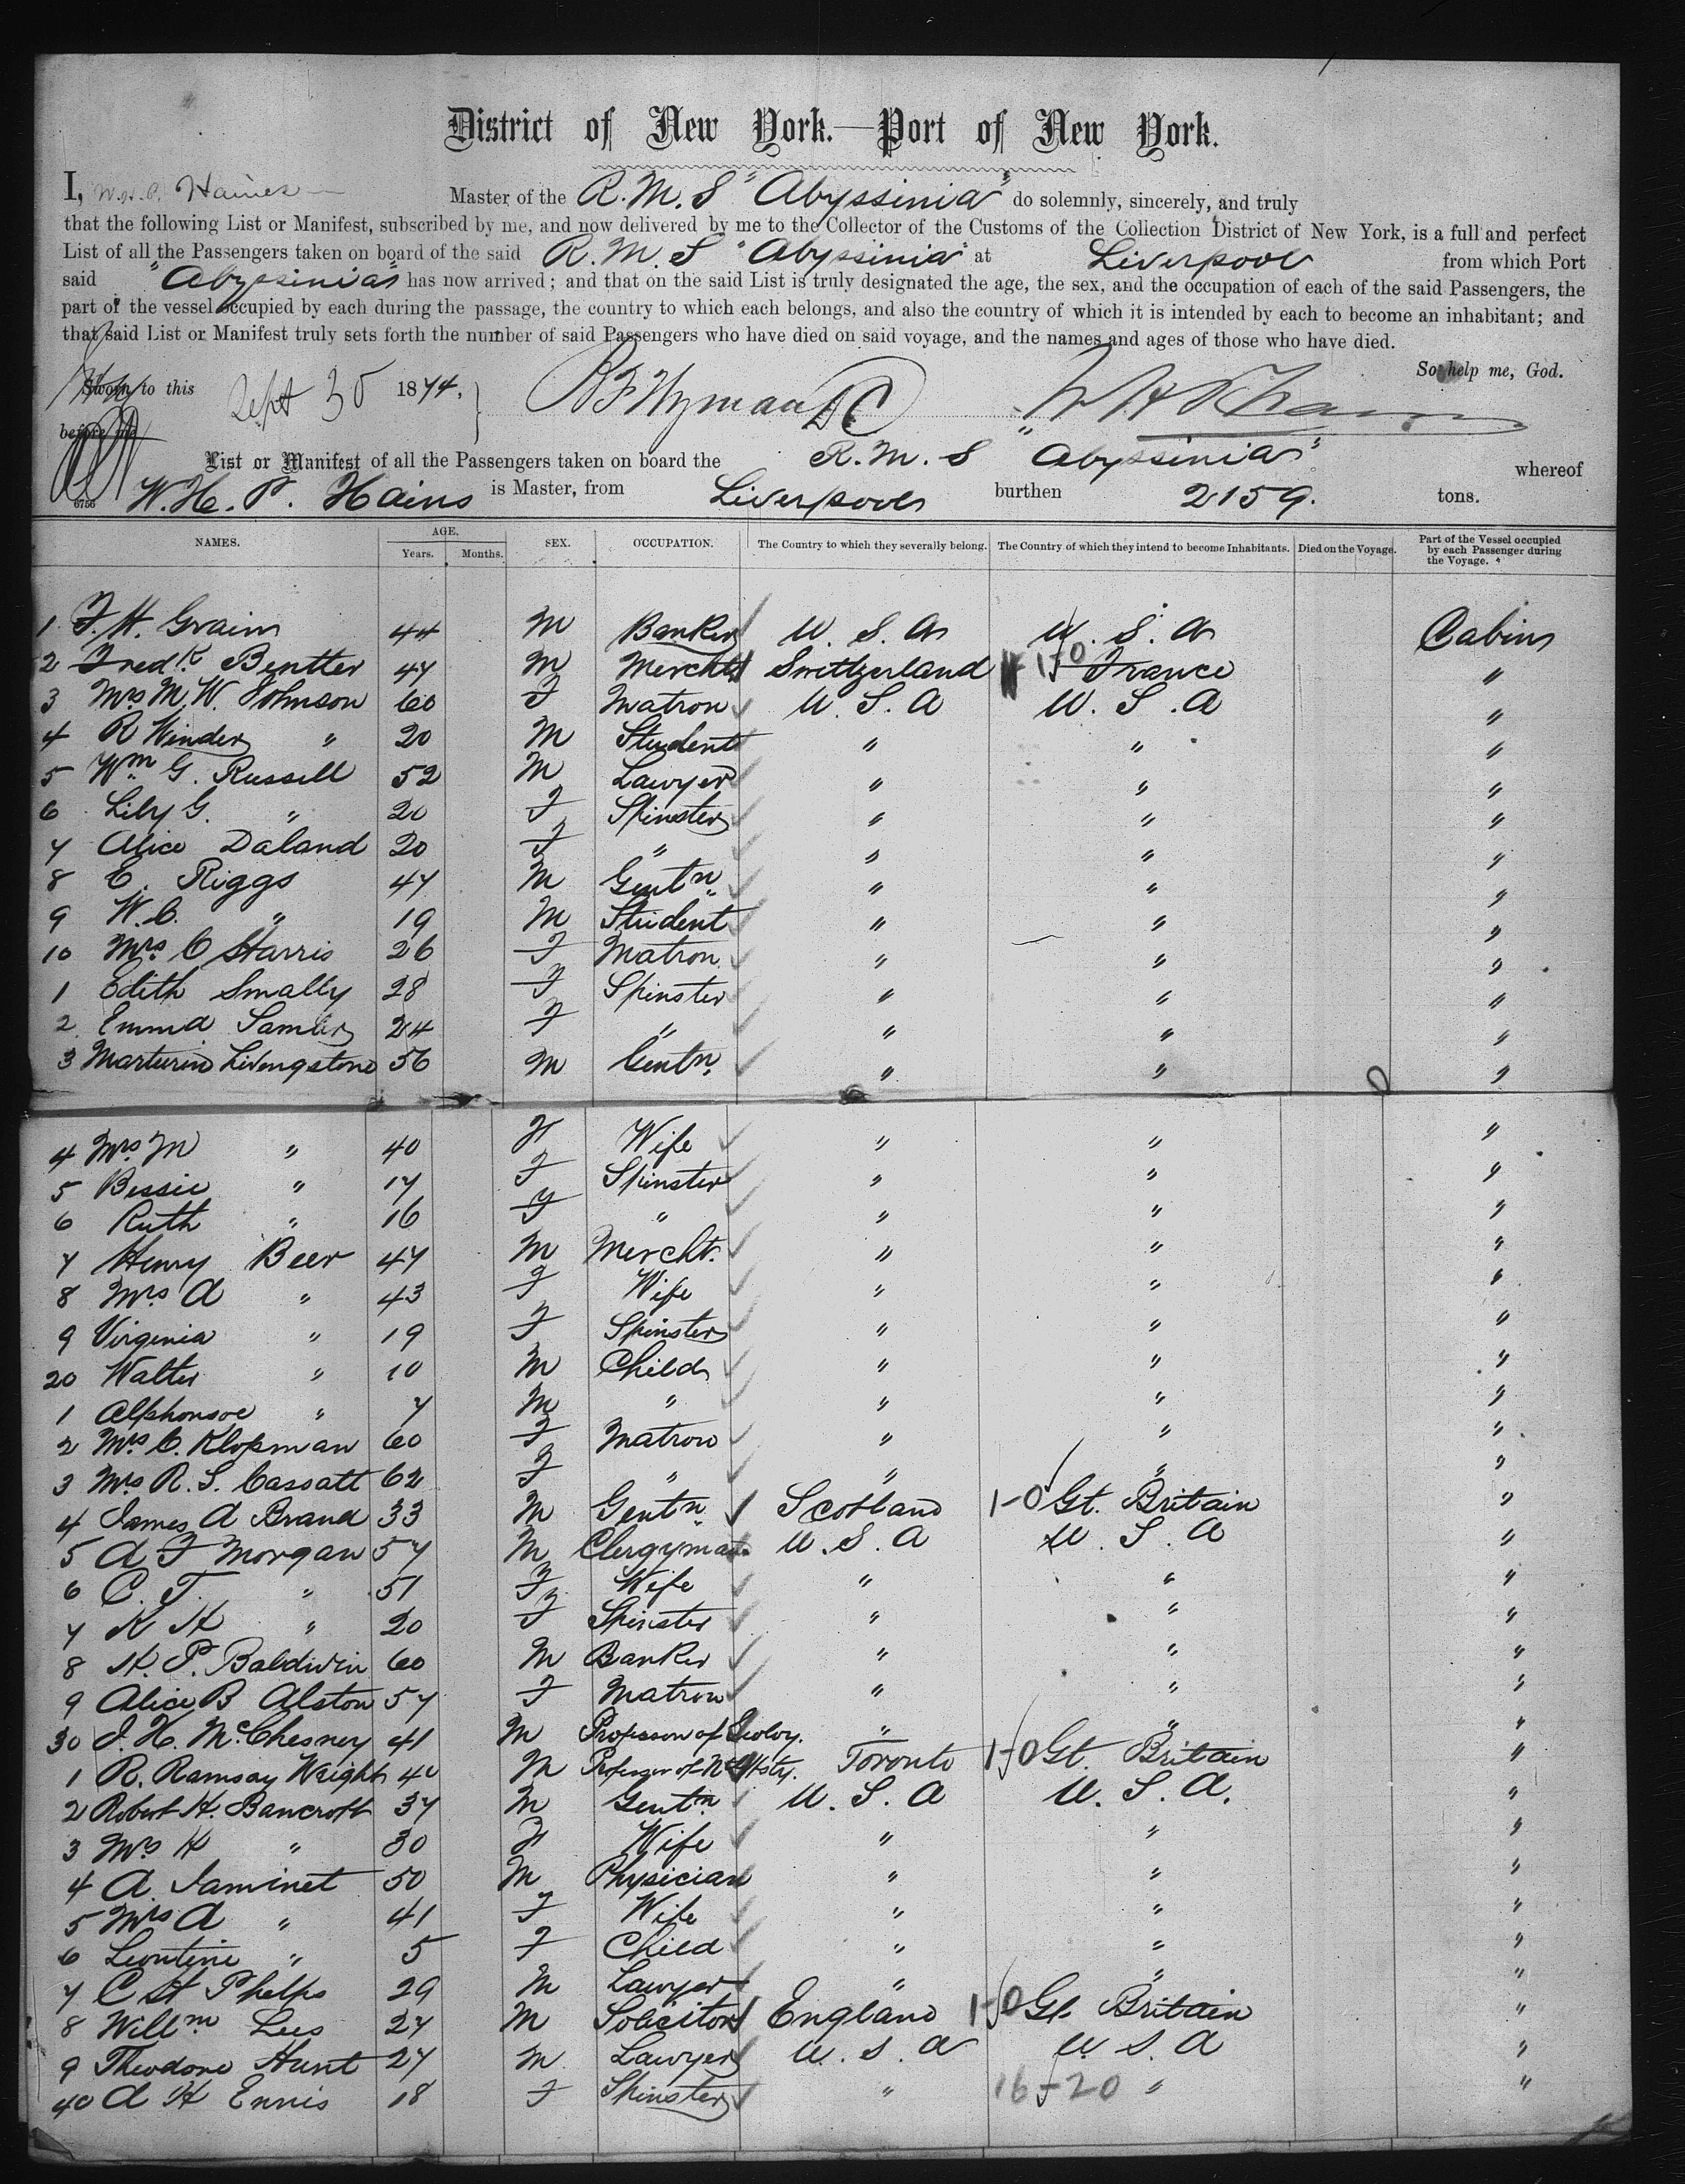 District of New York.—Port of New York.
I, W.H.P. Haines Master of the R.M.S "Abyssinia" do solemnly, sincerely, and truly
that the following List or Manifest, subscribed by me, and now delivered by me to the Collector of the Customs of the Collection District of New York, is a full and perfect
List of all the Passengers taken on board of the said R.M.S "Abyssinia" at Liverpool from which Port
said "Abyssinia" has now arrived; and that on the said List is truly designated the age, the sex, and the occupation of each of the said Passengers, the
part of the vessel occupied by each during the passage, the country to which each belongs, and also the country of which it is intended by each to become an inhabitant; and
that said List or Manifest truly sets forth the number of said Passengers who have died on said voyage, and the names and ages of those who have died.
So help me, God.
Sworn to this Sept 30 1874.
before me
List or Manifest of all the Passengers taken on board the R.M.S "Abyssinia" whereof
W.H.P. Hains is Master, from Liverpool burthen 2159. tons.
6756
NAMES. AGE. Years. Months. SEX. OCCUPATION. The Country to which they severally belong. The Country of which they intend to become Inhabitants. Died on the Voyage. Part of the Vessel occupied by each Passenger during the Voyage.
1 F. H. Grain 44 M Banker U.S.A U.S.A Cabin
2 Fredk Bentter 47 M Mercht Swittzerland 1-0 France "
3 Mrs M. W. Johnson 60 F Matron U.S.A U.S.A "
4 R Winder " 20 M Student " " "
5 Wm G. Russell 52 M Lawyer " " "
6 Lily G. " 20 F Spinster " " "
7 Alice Daland 20 F " " " "
8 E. Riggs 47 M Gentn " " "
9 W.C. " 19 M Student " " "
10 Mrs C Harris 26 F Matron " " "
1 Edith Smally 28 F Spinster " " "
2 Emma Samler 24 F " " " "
3 Marturin Livengstone 56 M Gentn. " " "
4 Mrs M " 40 F Wife " " "
5 Bessie " 17 F Spinster " " "
6 Ruth " 16 F " " " "
7 Henry Beer 47 M Mercht. " " "
8 Mrs A " 43 F Wife " " "
9 Virginia " 19 F Spinster " " "
20 Walter " 10 M Child " " "
1 Alphonsoe " 7 M " " " "
2 Mrs C. Klopman 60 F Matron " " "
3 Mrs R. S. Cassatt 62 F " " " "
4 James A Brand 33 M Gentn Scotland 1-0 Gt. Britain "
5 A F Morgan 57 M Clergyman U.S.A U.S.A "
6 C. T. " 51 F Wife " " "
7 K H " 20 F Spinster " " "
8 H. P. Baldwin 60 M Banker " " "
9 Alice B Alston 57 F Matron " " "
30 J. H. McChesney 41 M Professor of Geoloy. " " "
1 R. Ramsay Wright 40 M Professor of Nt Hsty. Toronto 1-0 Gt. Britain "
2 Robert H. Bancroft 37 M Gentn U.S.A U.S.A. "
3 Mrs H " 30 F Wife " " "
4 A. Jaminet 50 M Physician " " "
5 Mrs A " 41 F Wife " " "
6 Leontine " 5 F Child " " "
7 C H Phelps 29 M Lawyer " " "
8 Willm Lees 27 M Solicitor England 1-0 Gt. Britain "
9 Theodore Hunt 27 M Lawyer U.S.A U S.A "
40 A H Ennis 18 F Spinster " 16-20 " "